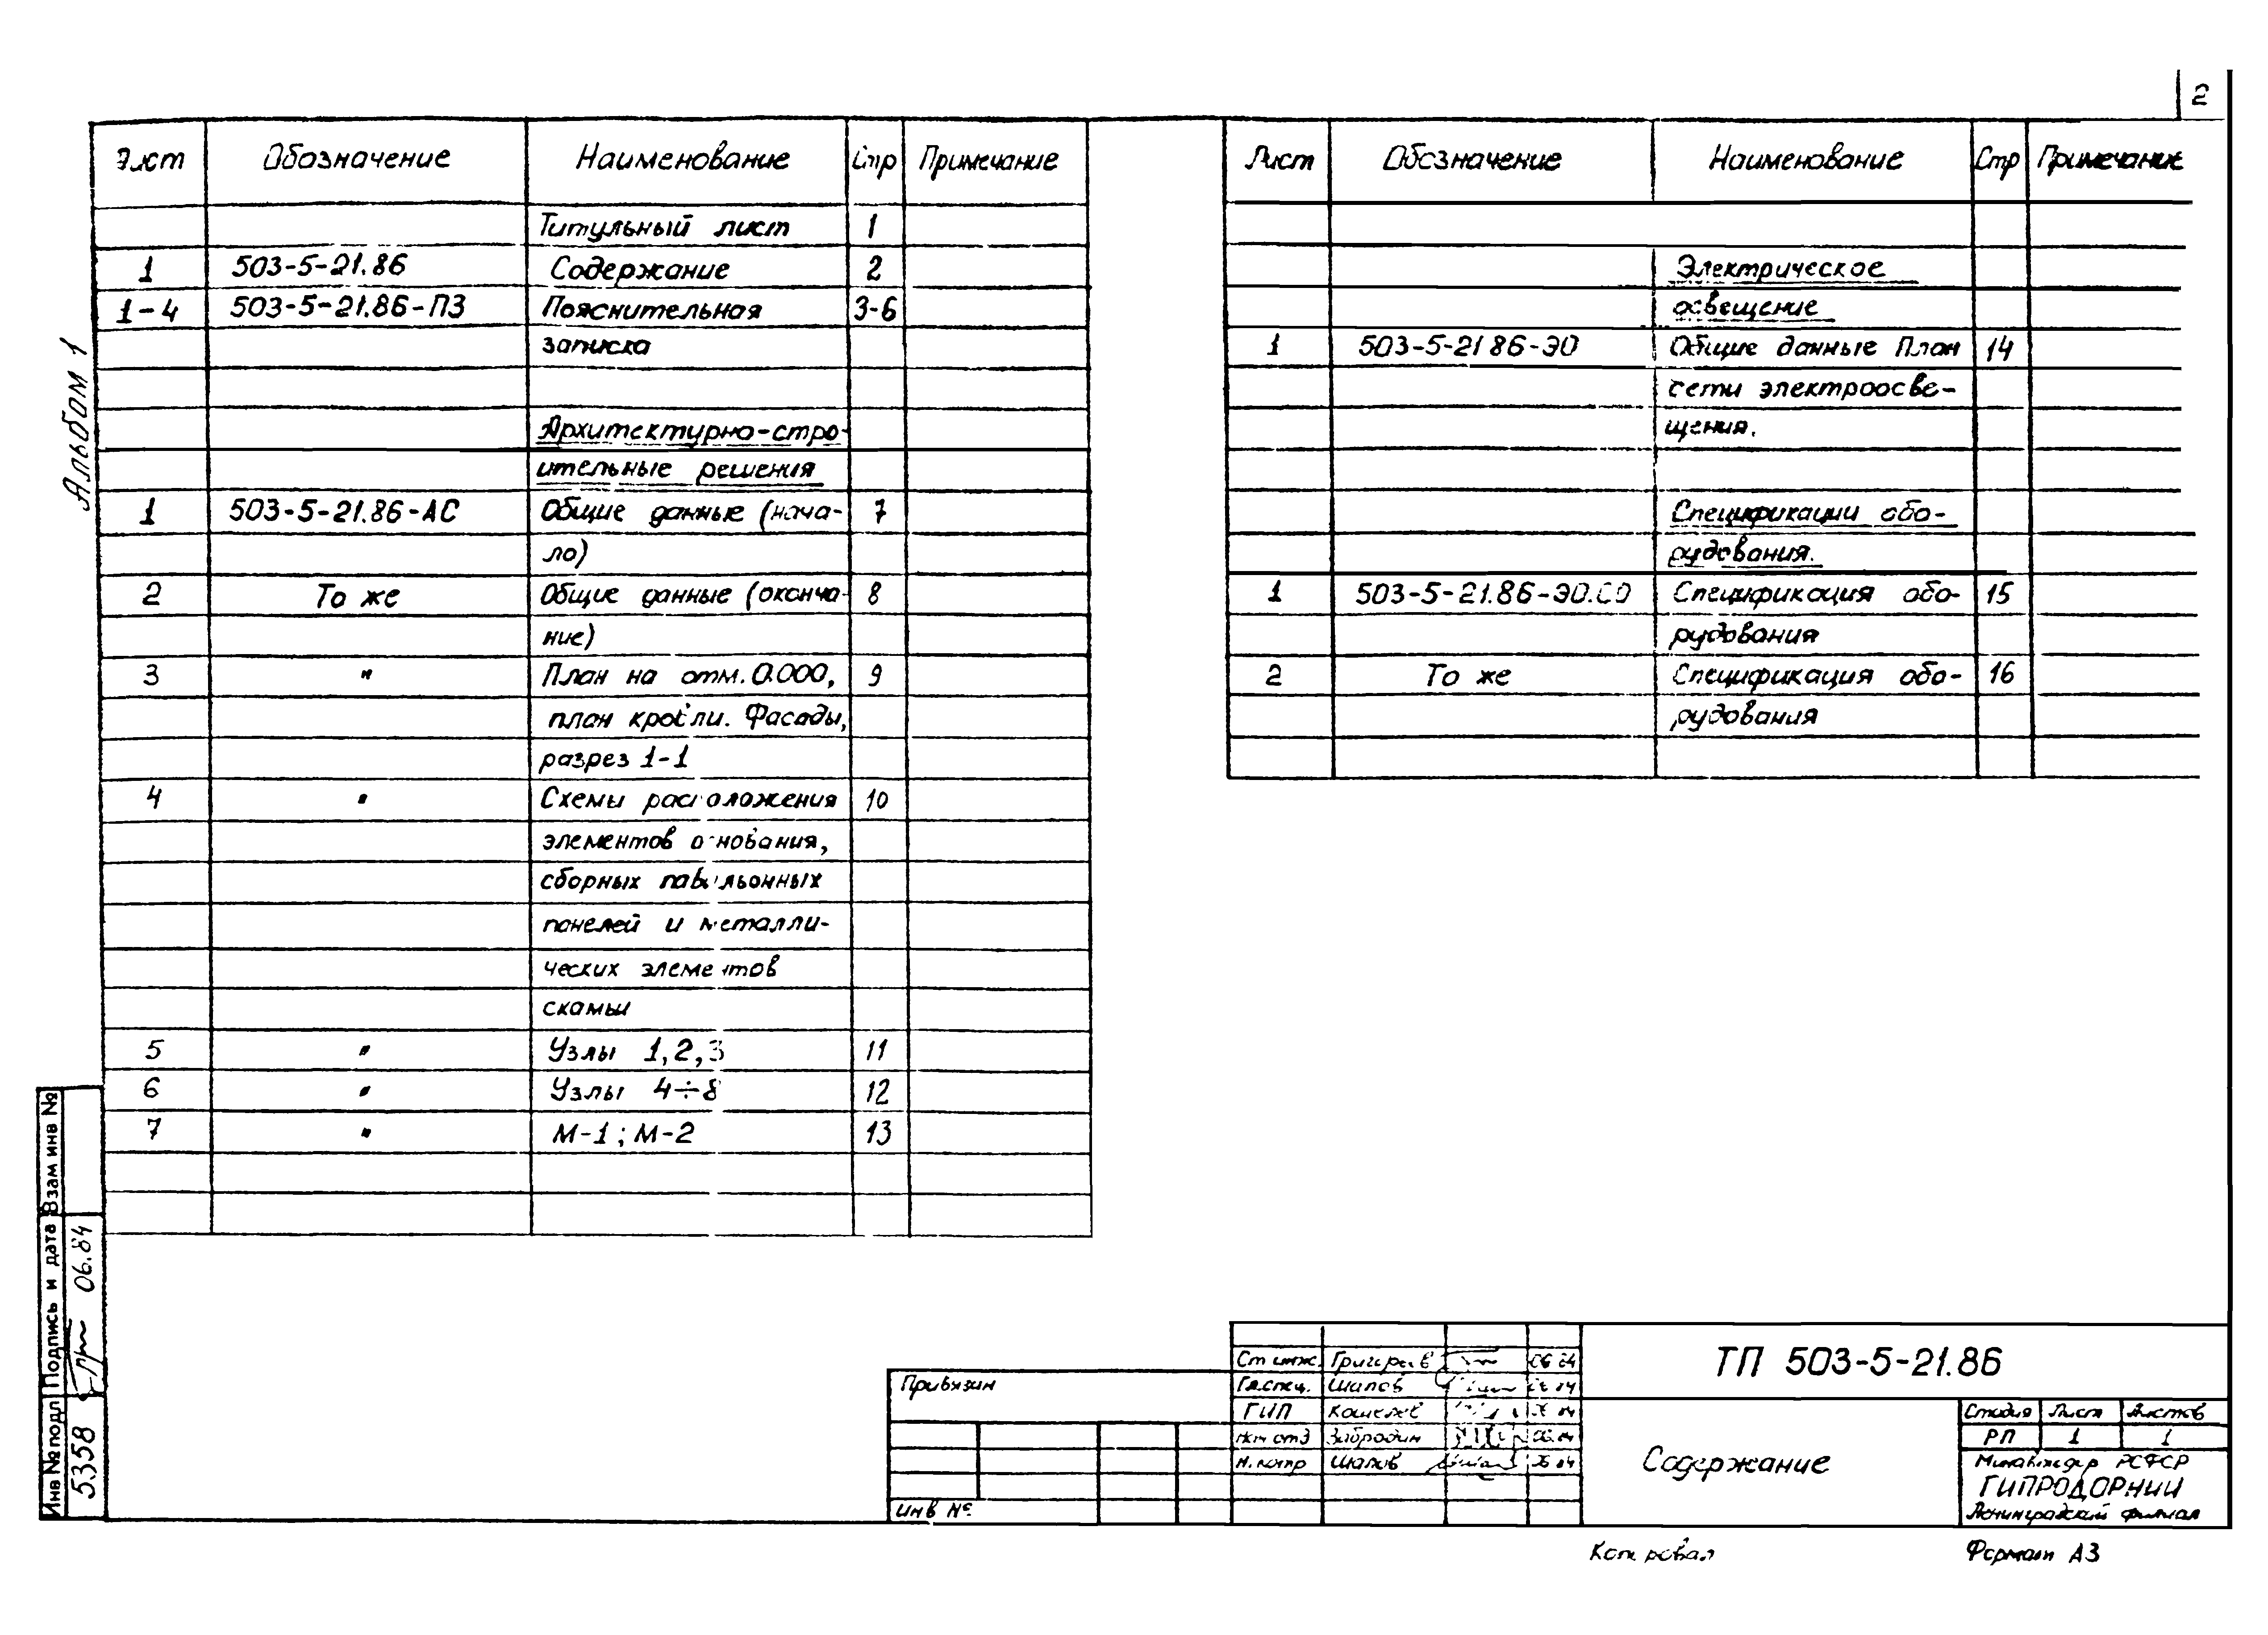 2
Альбом 1
Лист Обозначение Наименование Стр Примечание
Титульный лист 1
1 503-5-21.86 Содержание 2
1-4 503-5-21.86-ПЗ Пояснительная 3-6
записка
Архитектурно-стро-
ительные решения
1 503-5-21.86-АС Общие данные (нача- 7
ло)
2 То же Общие данные (оконча- 8
ние)
3 " План на отм. 0.000, 9
план кровли. Фасады,
разрез 1-1
4 " Схемы расположения 10
элементов основания,
сборных павильонных
панелей и металли-
ческих элементов
скамьи
5 " Узлы 1,2,3 11
6 " Узлы 4÷8 12
7 " М-1; М-2 13
Лист Обозначение Наименование Стр Примечание
Электрическое
освещение
1 503-5-21 86-ЭО Общие данные План 14
сети электроосве-
щения.
Спецификации обо-
рудования.
1 503-5-21.86-ЭО.СО Спецификация обо- 15
рудования
2 То же Спецификация обо- 16
рудования
Взам инв №
Подпись и дата 06.84
Инв № подл 5358
Привязан
Инв №
Ст инж. Григорьев 06 84
Гл.спец. Шапов
ГИП Кошелев
Нач отд Забродин 06.84
Н. контр Шапов 06 84
ТП 503-5-21.86
Содержание
Стадия Лист Листов
РП 1 1
Минавтодор РСФСР
ГИПРОДОРНИИ
Ленинградский филиал
Копировал Формат А3